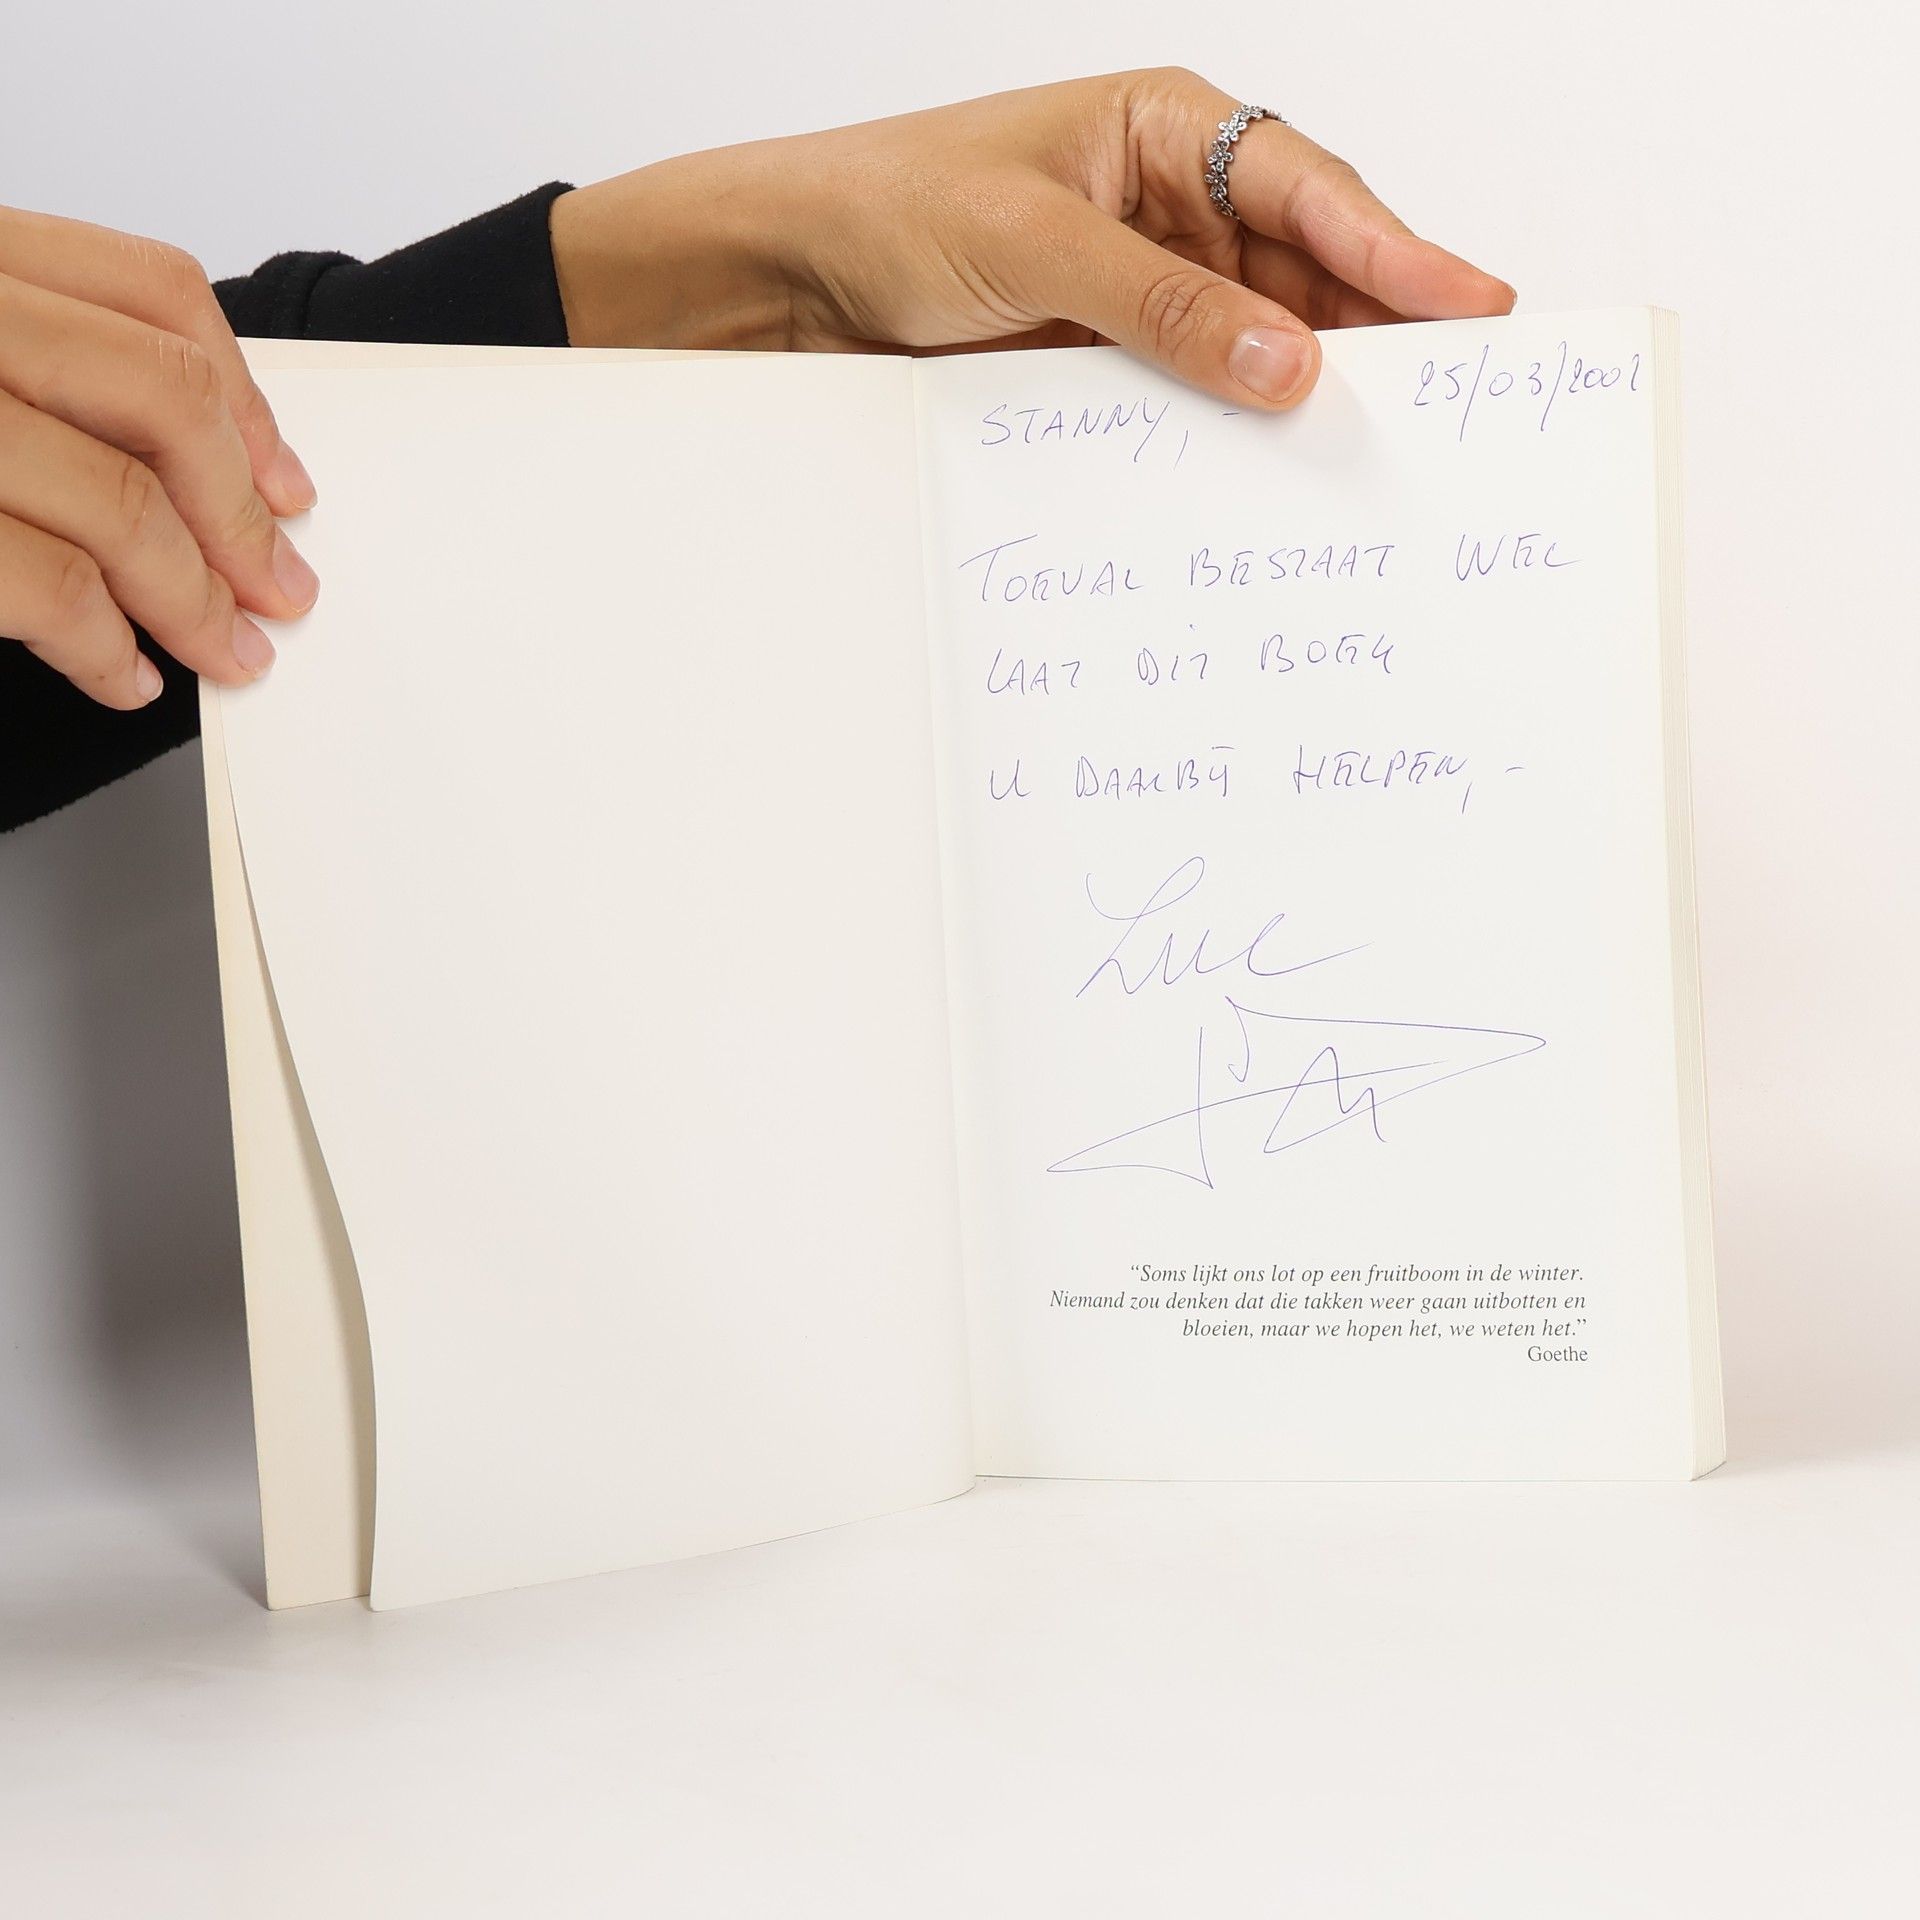 25/03/2001
STANNY, -
TOEVAL BESTAAT WEL
LAAT DIT BOEK
U DAARBIJ HELPEN, -
Luc
“Soms lijkt ons lot op een fruitboom in de winter.
Niemand zou denken dat die takken weer gaan uitbotten en
bloeien, maar we hopen het, we weten het.”
Goethe